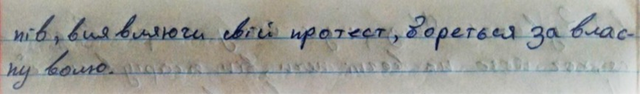 пів, виявляючи свій протест, бореться за влас-
ну волю.